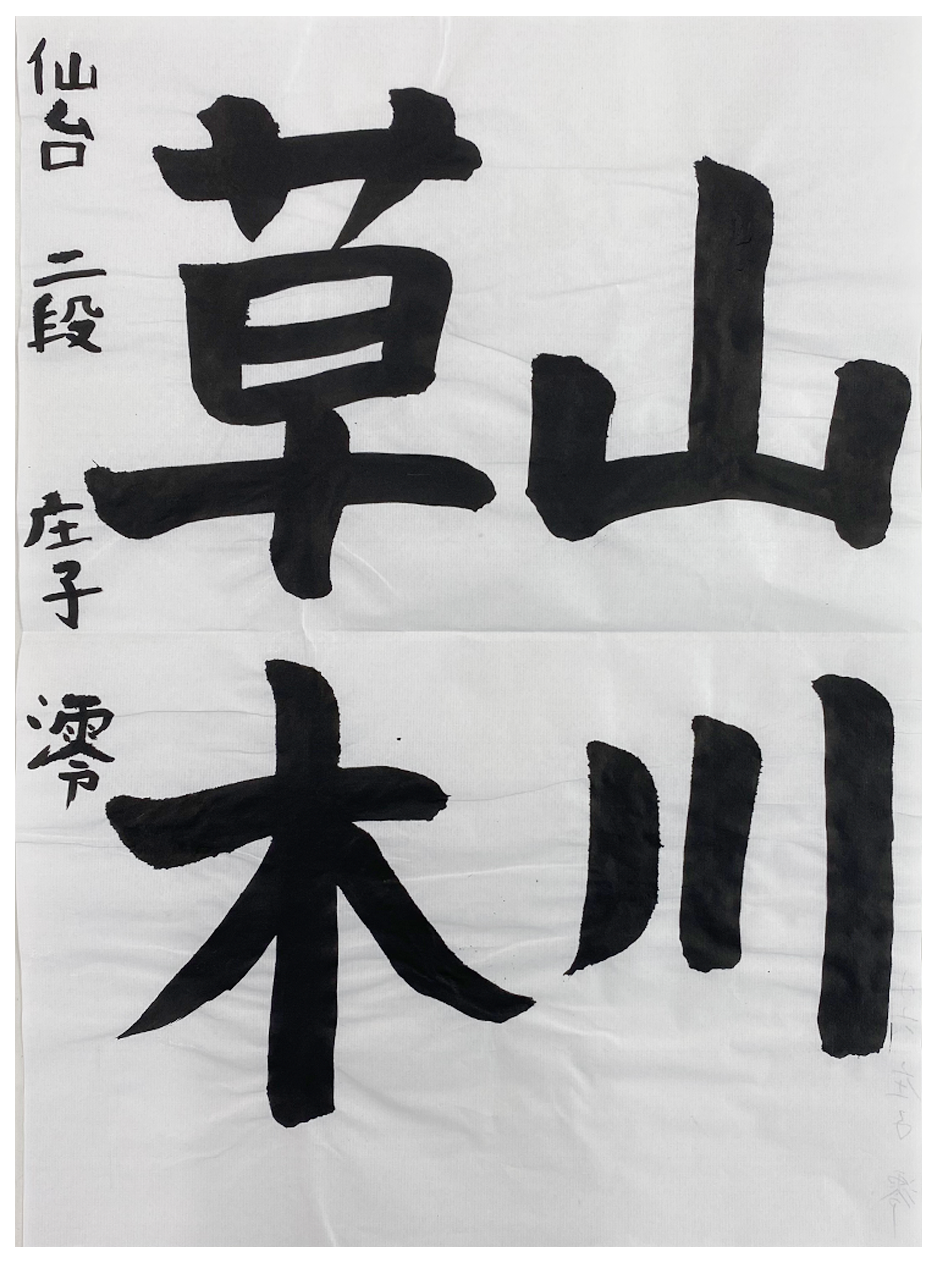 山川
草木
仙台 二段 庄子 澪